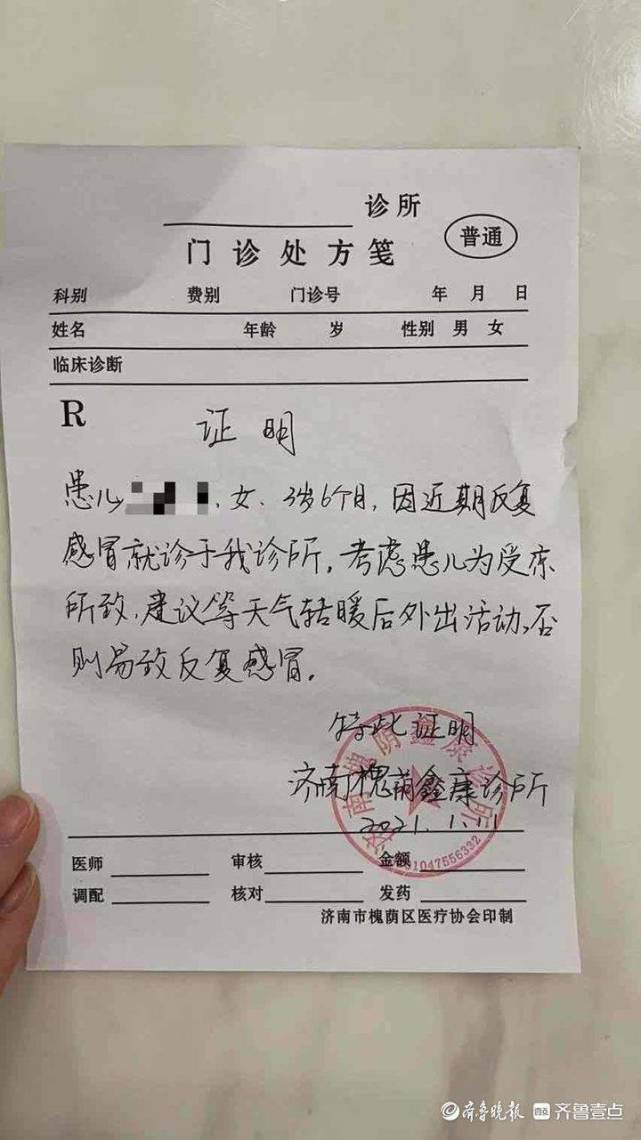 诊所
门诊处方笺 普通
科别 费别 门诊号 年 月 日
姓名 年龄 岁 性别 男 女
临床诊断
R
证明
患儿 ,女、3岁6个月,因近期反复
感冒就诊于我诊所,考虑患儿为受凉
所致,建议等天气转暖后外出活动,否
则易致反复感冒。
特此证明
济南槐荫鑫康诊所
2021.1.11
济南槐荫鑫康诊所
医师 审核 金额
调配 核对 发药
济南市槐荫区医疗协会印制
齐鲁晚报 齐鲁壹点